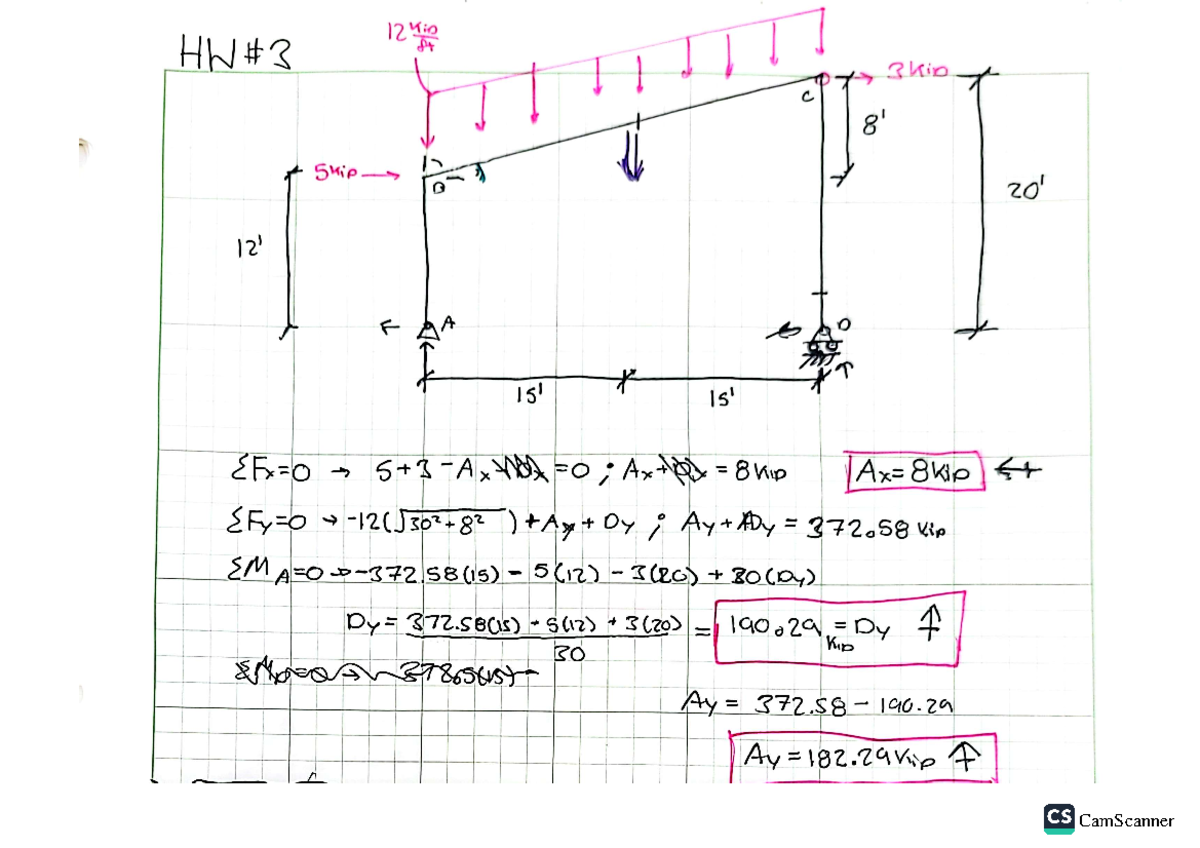 HW#3
12 Kip/ft
3Kip
C
8'
5Kip
B
20'
12'
A
D
15'
15'
ΣFx=0 → 5+3-Ax =0 ; Ax+ = 8 Kip
Ax= 8Kip ←+
ΣFy=0 → -12(√30²+8²) + Ay + Dy ; Ay + Dy = 372.58 Kip
ΣM A=0 → -372.58(15) - 5(12) - 3(20) + 30(Dy)
Dy = 372.58(15) + 5(12) + 3(20) / 30 = 190.29 Kip = Dy ↑
Ay = 372.58 - 190.29
Ay = 182.29 Kip ↑
CS CamScanner